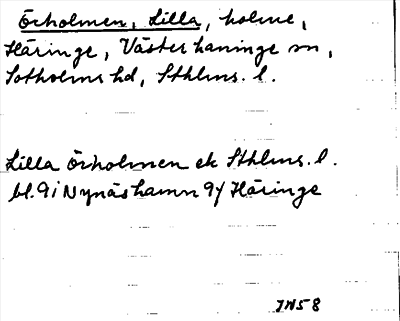 Örholmen, Lilla, holme,
Häringe, Västerhaninge sn,
Sotholms hd, Sthlms. l.
Lilla Örholmen ek Sthlms. l.
bl. 9i Nynäshamn 9f Häringe
JW58